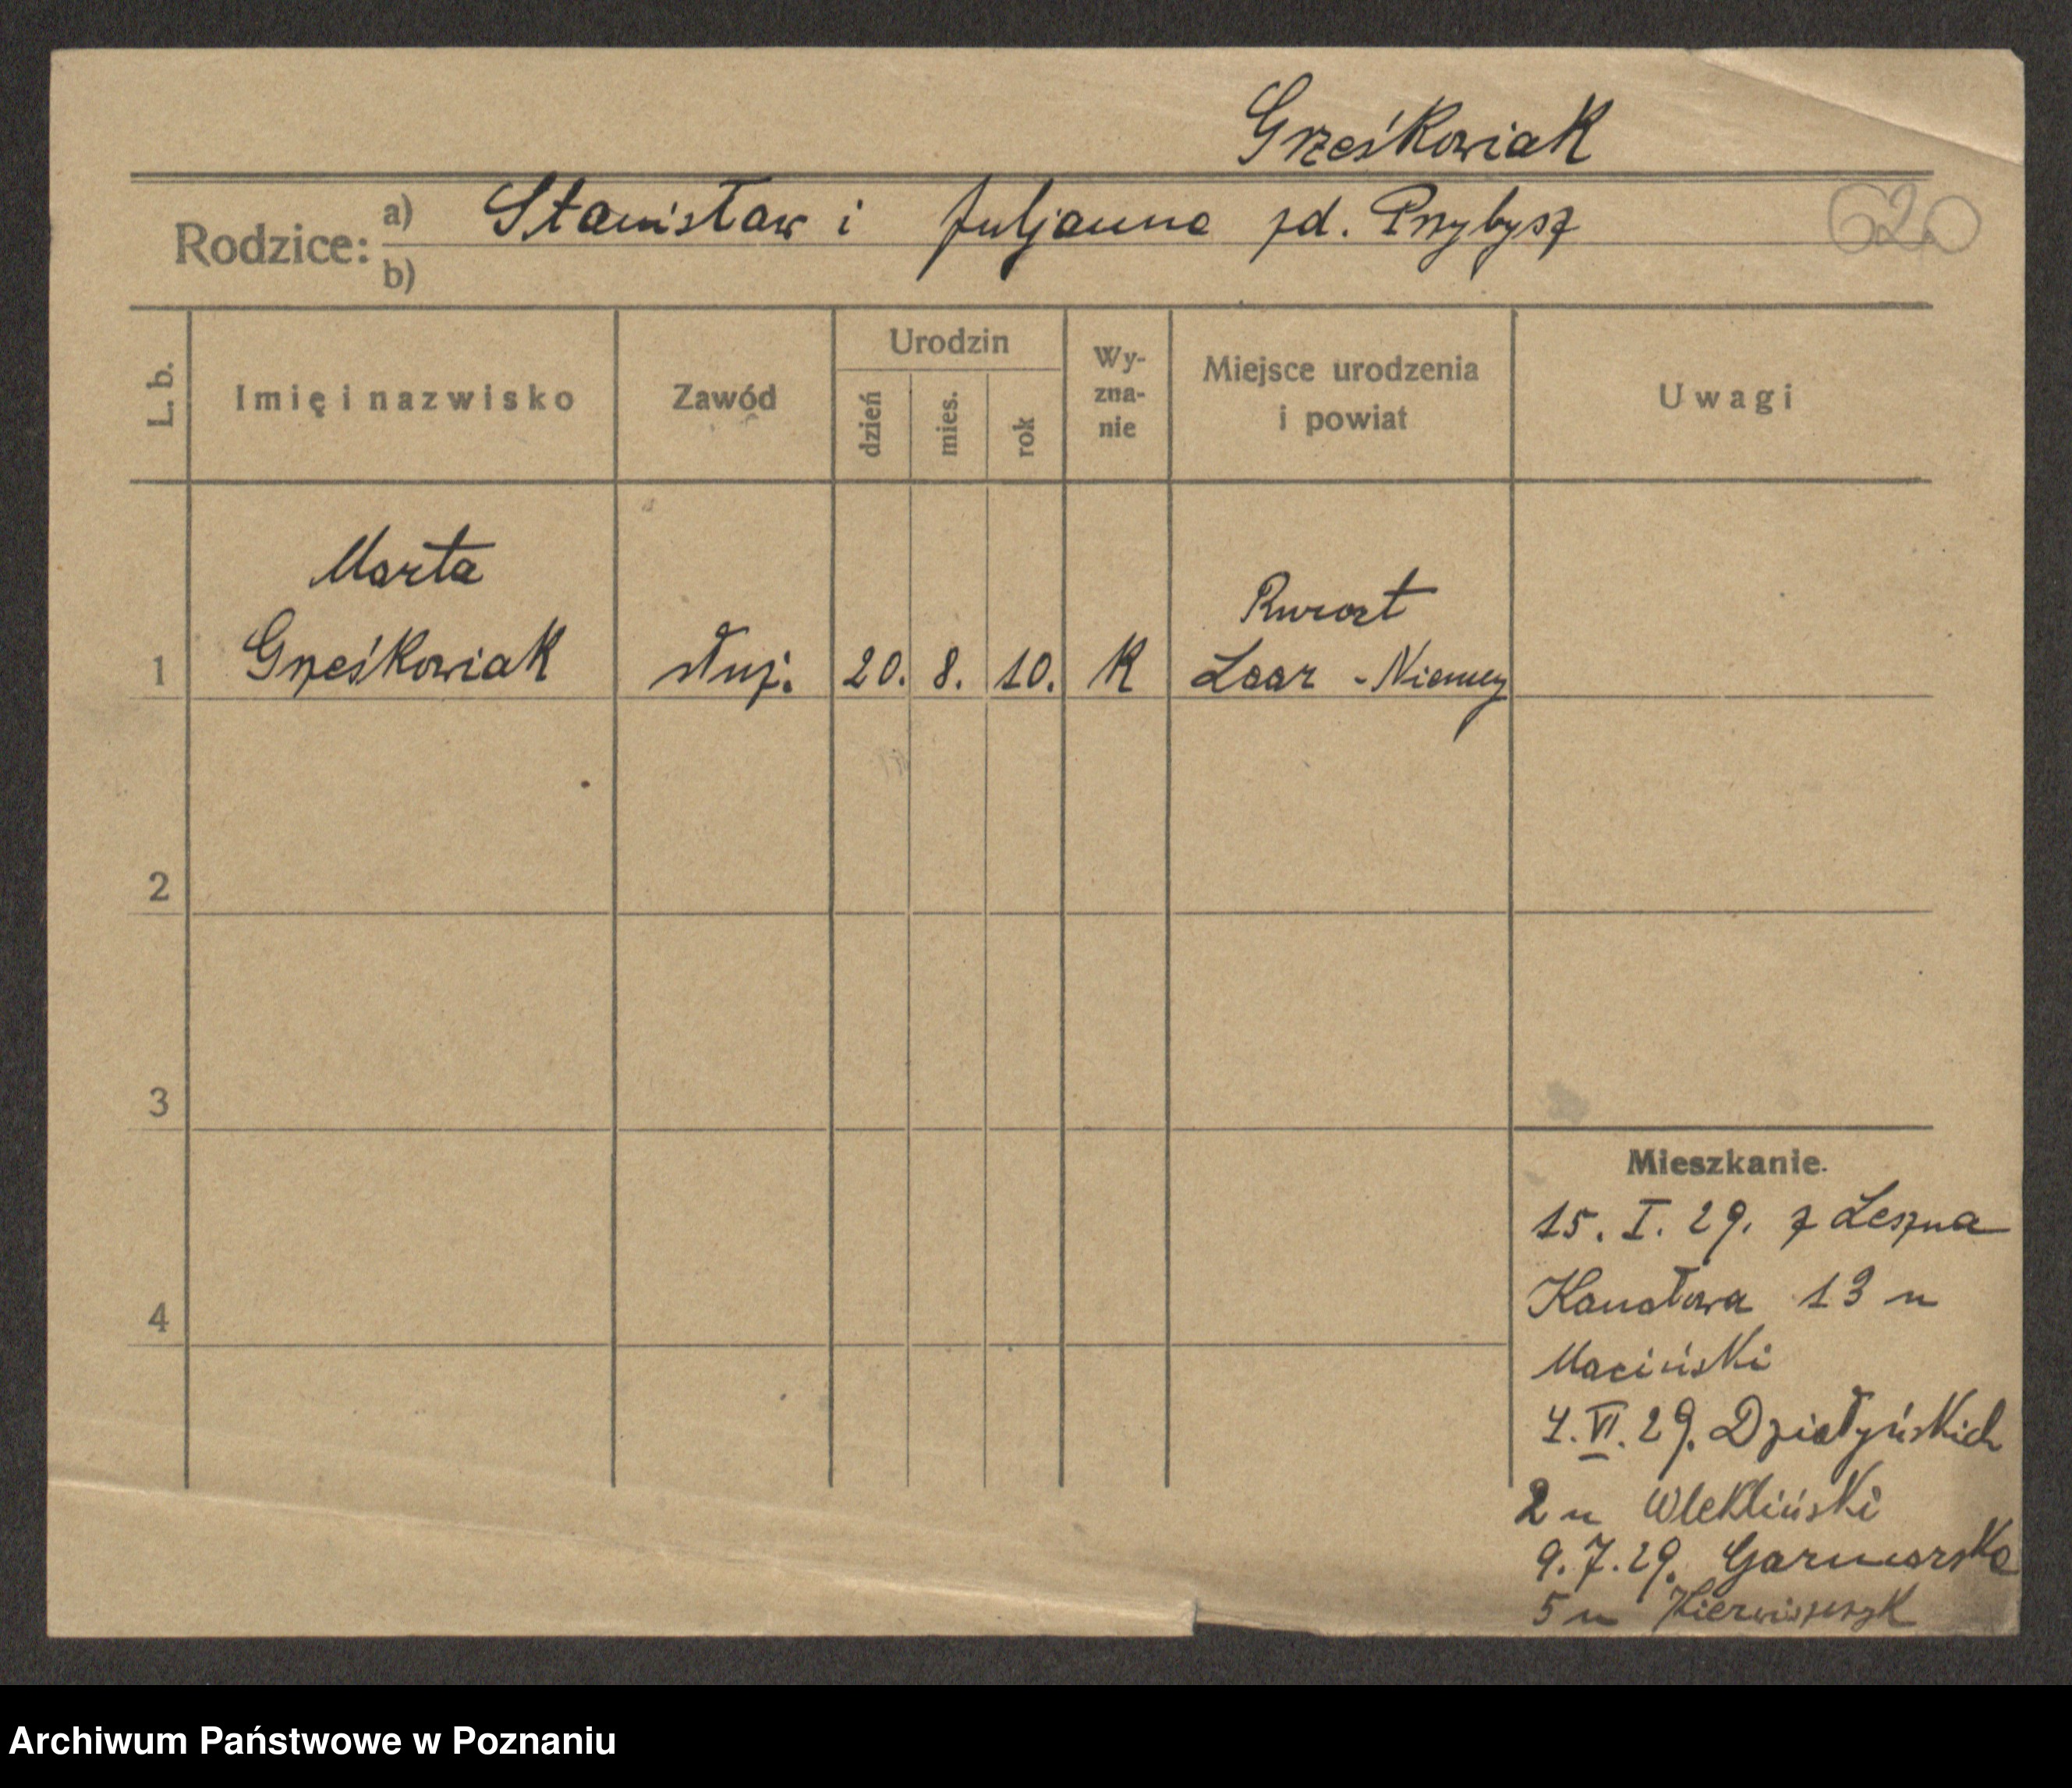 Grześkowiak
Rodzice: a) Stanisław i Juljanna zd. Przybysz
b)
620
L. b.
Imię i nazwisko
Zawód
Urodzin
dzień
mies.
rok
Wy-
zna-
nie
Miejsce urodzenia
i powiat
Uwagi
Marta
Rurort
1 Grześkowiak służ. 20. 8. 10. K Laar - Niemcy
2
3
4
Mieszkanie.
15. I. 29. z Leszna
Kanałowa 13 u
Maciński
4. VI. 29. Działyńskich
2 u Wlekliński
9. 7. 29. Garncarska
5 u
Archiwum Państwowe w Poznaniu